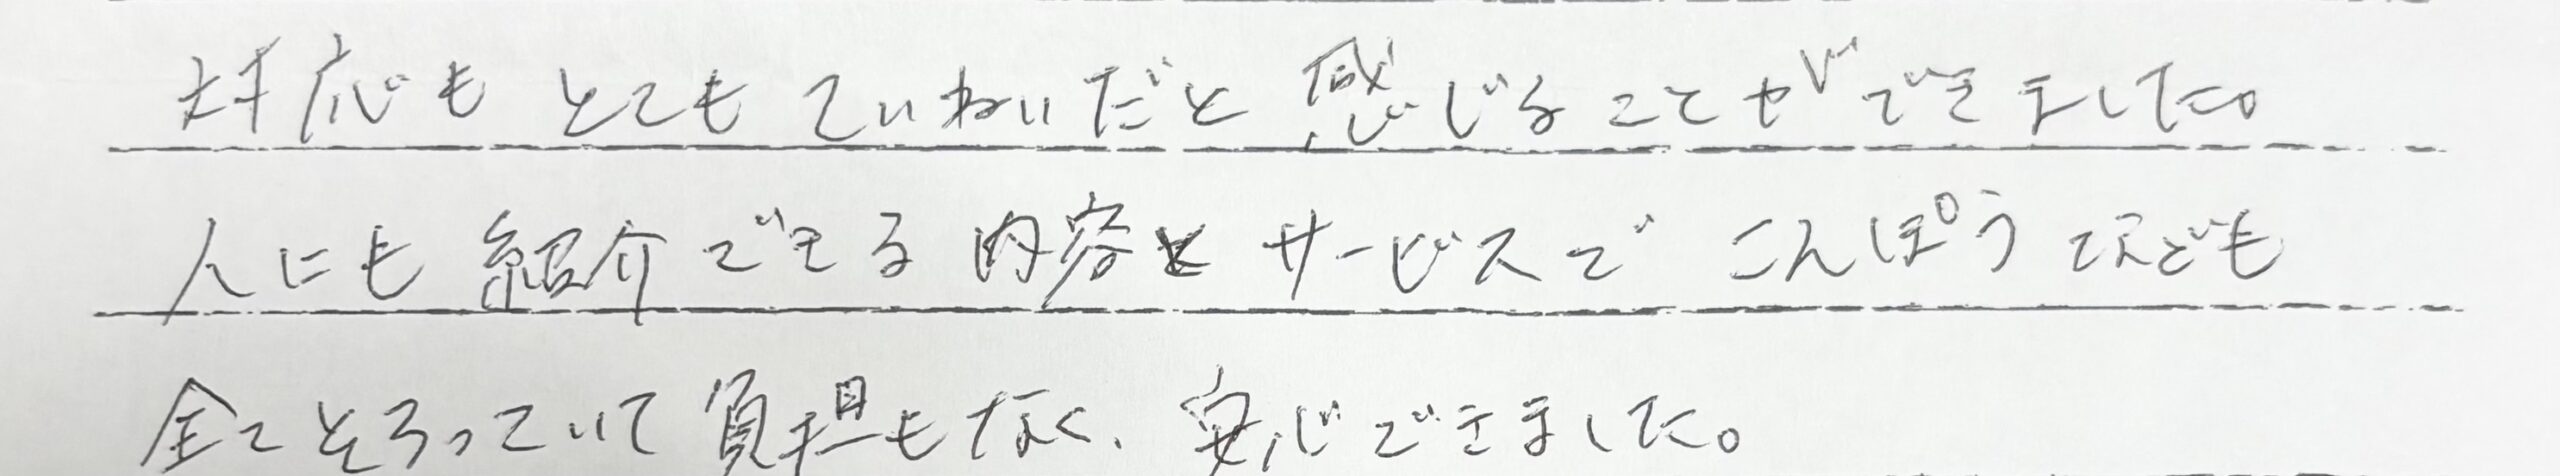 対応もとてもていねいだと感じることができました。
人にも紹介できる内容とサービスでこんぽうなども
全てそろっていて負担もなく、安心できました。